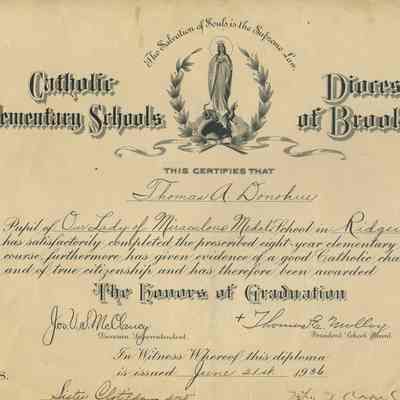 The Salvation of Souls is the Supreme Law
Catholic Dioces
ementary Schools of Brook
THIS CERTIFIES THAT
Thomas A. Donohue
Pupil of Our Lady of Miraculous Medal School in Ridge
has satisfactorily completed the prescribed eight-year elementary
course, furthermore has given evidence of a good Catholic cha
and of true citizenship and has therefore been awarded
The Honors of Graduation
Jos. V. S. McClancy + Thomas E. Molloy
Diocesan Superintendent. President School Board.
In Witness Whereof this diploma
is issued June 21st 1936
S.
Sister